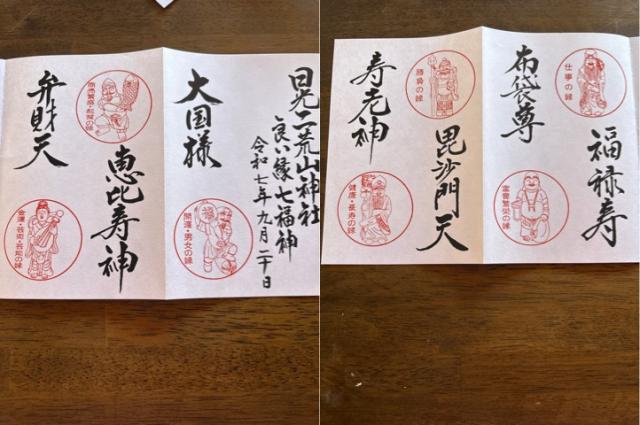 日光二荒山神社
良い縁七福神
令和七年九月二十日
大国様
開運・男女の縁
恵比寿神
商売繁盛・和楽の縁
弁財天
金運・芸術・芸能の縁
福禄寿
仕事の縁
布袋尊
富貴繁栄の縁
毘沙門天
勝負の縁
寿老神
健康・長寿の縁